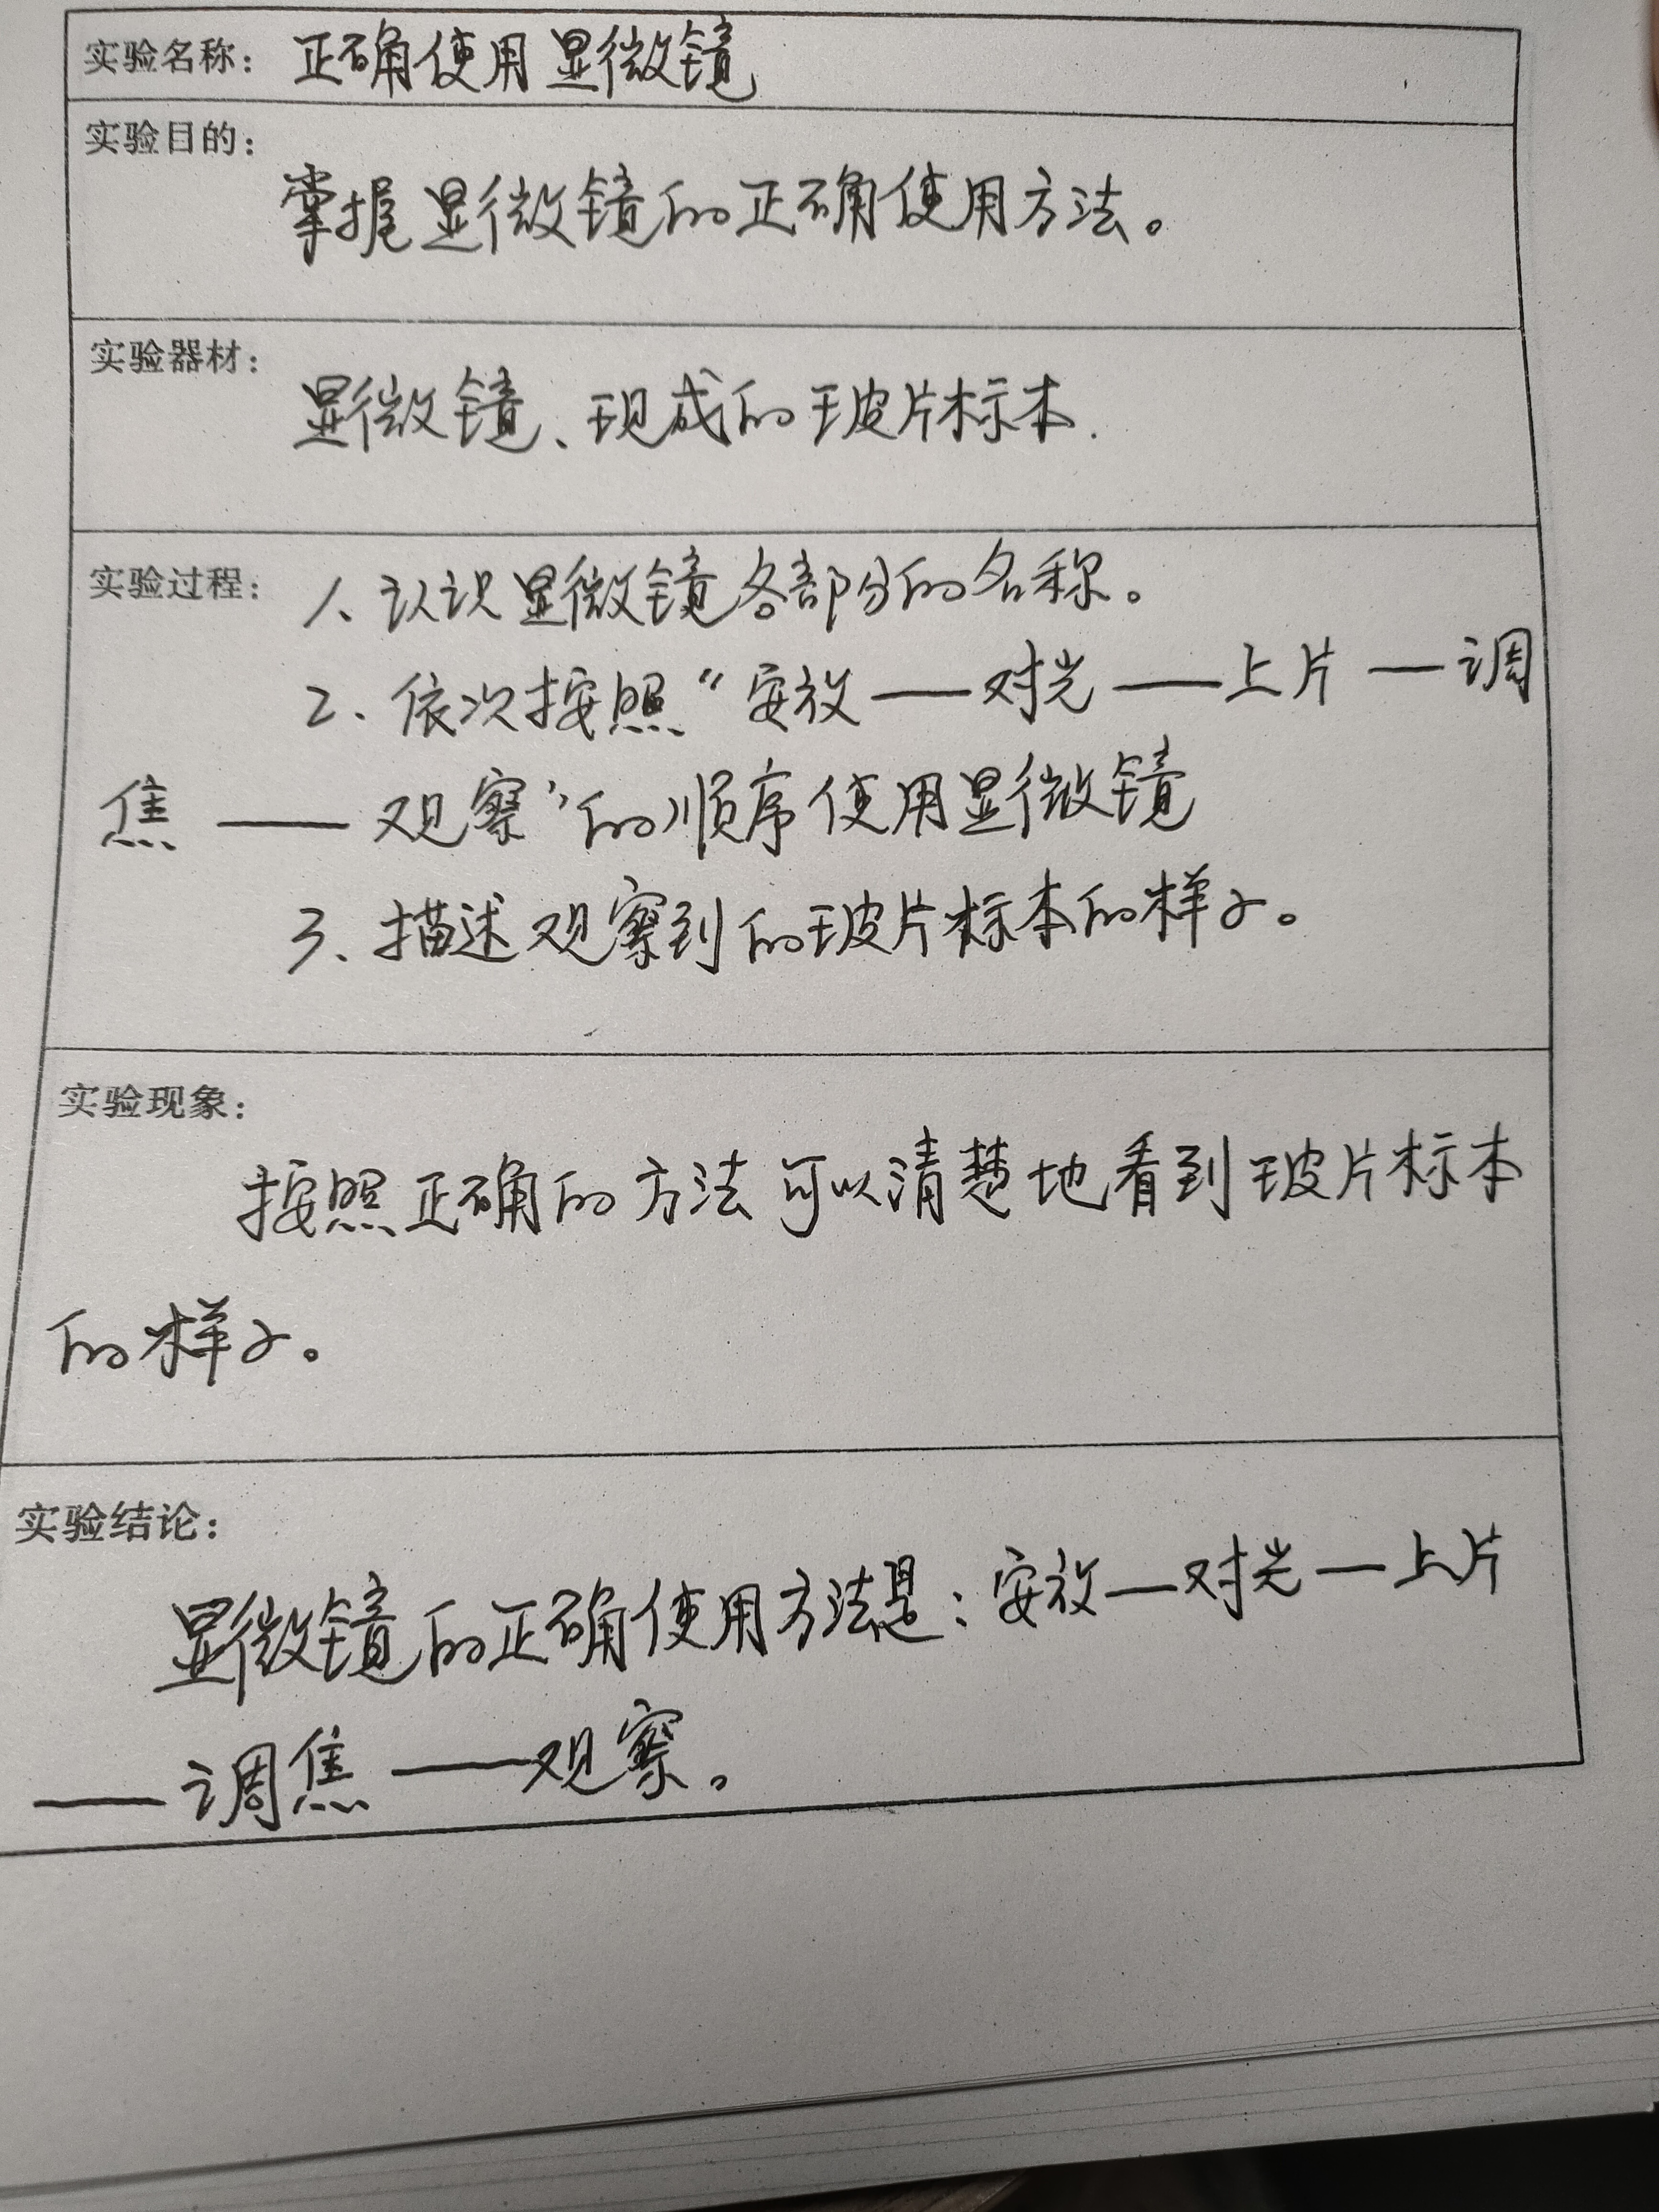 实验名称：正确使用显微镜
实验目的：
掌握显微镜的正确使用方法。
实验器材：
显微镜、现成的玻片标本.
实验过程：1、认识显微镜各部分的名称。
2、依次按照“安放——对光——上片——调
焦——观察”的顺序使用显微镜
3、描述观察到的玻片标本的样子。
实验现象：
按照正确的方法可以清楚地看到玻片标本
的样子。
实验结论：
显微镜的正确使用方法是：安放—对光—上片
——调焦——观察。